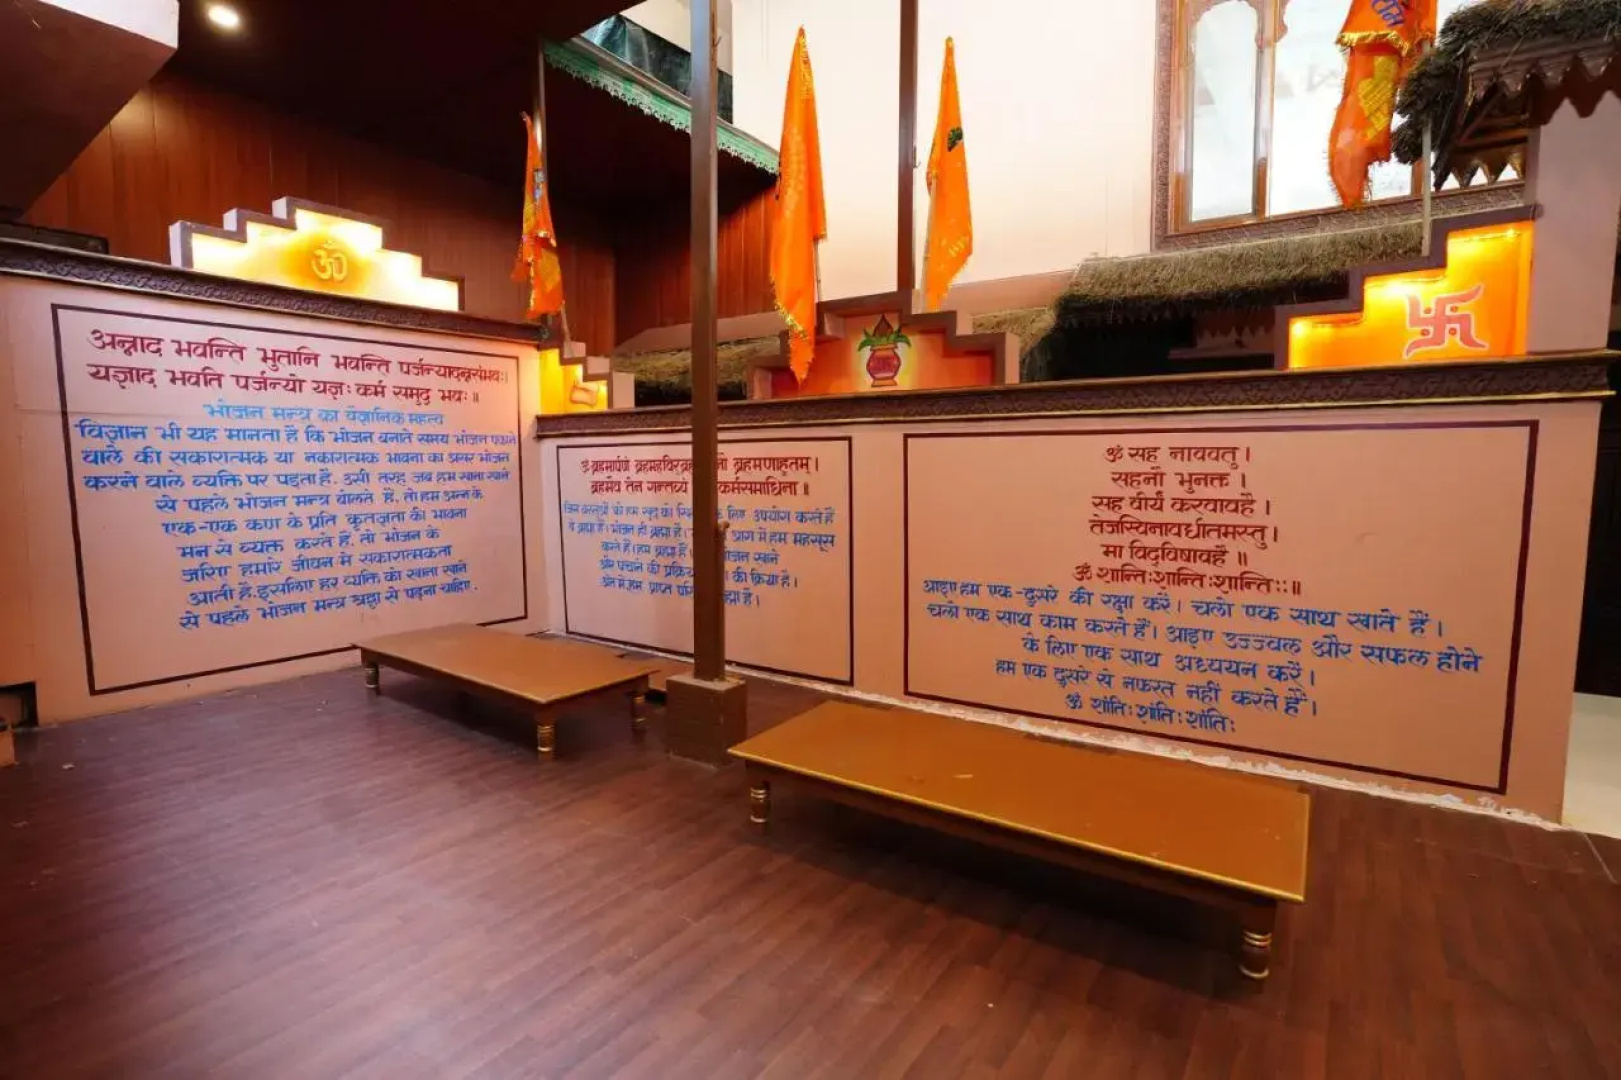 ॐ
अन्नाद भवन्ति भुतानि भवन्ति पर्जन्यादन्नसंभवः।
यज्ञाद भवति पर्जन्यो यज्ञः कर्म समुद्र भवः॥
भोजन मन्त्र का वैज्ञानिक महत्व
विज्ञान भी यह मानता है कि भोजन बनाते समय भोजन पकाने
वाले की सकारात्मक या नकारात्मक भावना का असर भोजन
करने वाले व्यक्ति पर पड़ता है. उसी तरह जब हम खाना खाने
से पहले भोजन मन्त्र बोलते हैं, तो हम अन्न के
एक-एक कण के प्रति कृतज्ञता की भावना
मन से व्यक्त करते हैं. तो भोजन के
जरिए हमारे जीवन में सकारात्मकता
आती है. इसलिए हर व्यक्ति को खाना खाने
से पहले भोजन मन्त्र श्रद्धा से पढ़ना चाहिए.
ॐ ब्रहमार्पणं ब्रहमहविर्ब्रह ब्रहमणाहुतम्।
ब्रहमेव तेन गन्तव्यं कर्मसमाधिना॥
जिन वस्तुओं को हम खुद को लिए उपयोग करते हैं
वे ब्रह्म हैं। भोजन ही ब्रह्म है। आग में हम महसूस
करते हैं। हम ब्रह्म हैं। भोजन खाने
और पचाने की प्रक्रिया की क्रिया है।
अंत में हम प्राप्त
ॐ सह नाववतु।
सहनौ भुनक्त।
सह वीर्यं करवावहै।
तेजस्विनावद्यीतमस्तु।
मा विद्विषावहै॥
ॐ शान्तिःशान्तिःशान्तिः॥
आइए हम एक-दुसरे की रक्षा करें। चलो एक साथ खाते हैं।
चलो एक साथ काम करते हैं। आइए उज्ज्वल और सफल होने
के लिए एक साथ अध्ययन करें।
हम एक दुसरे से नफरत नहीं करते हैं।
ॐ शांतिःशांतिःशांतिः